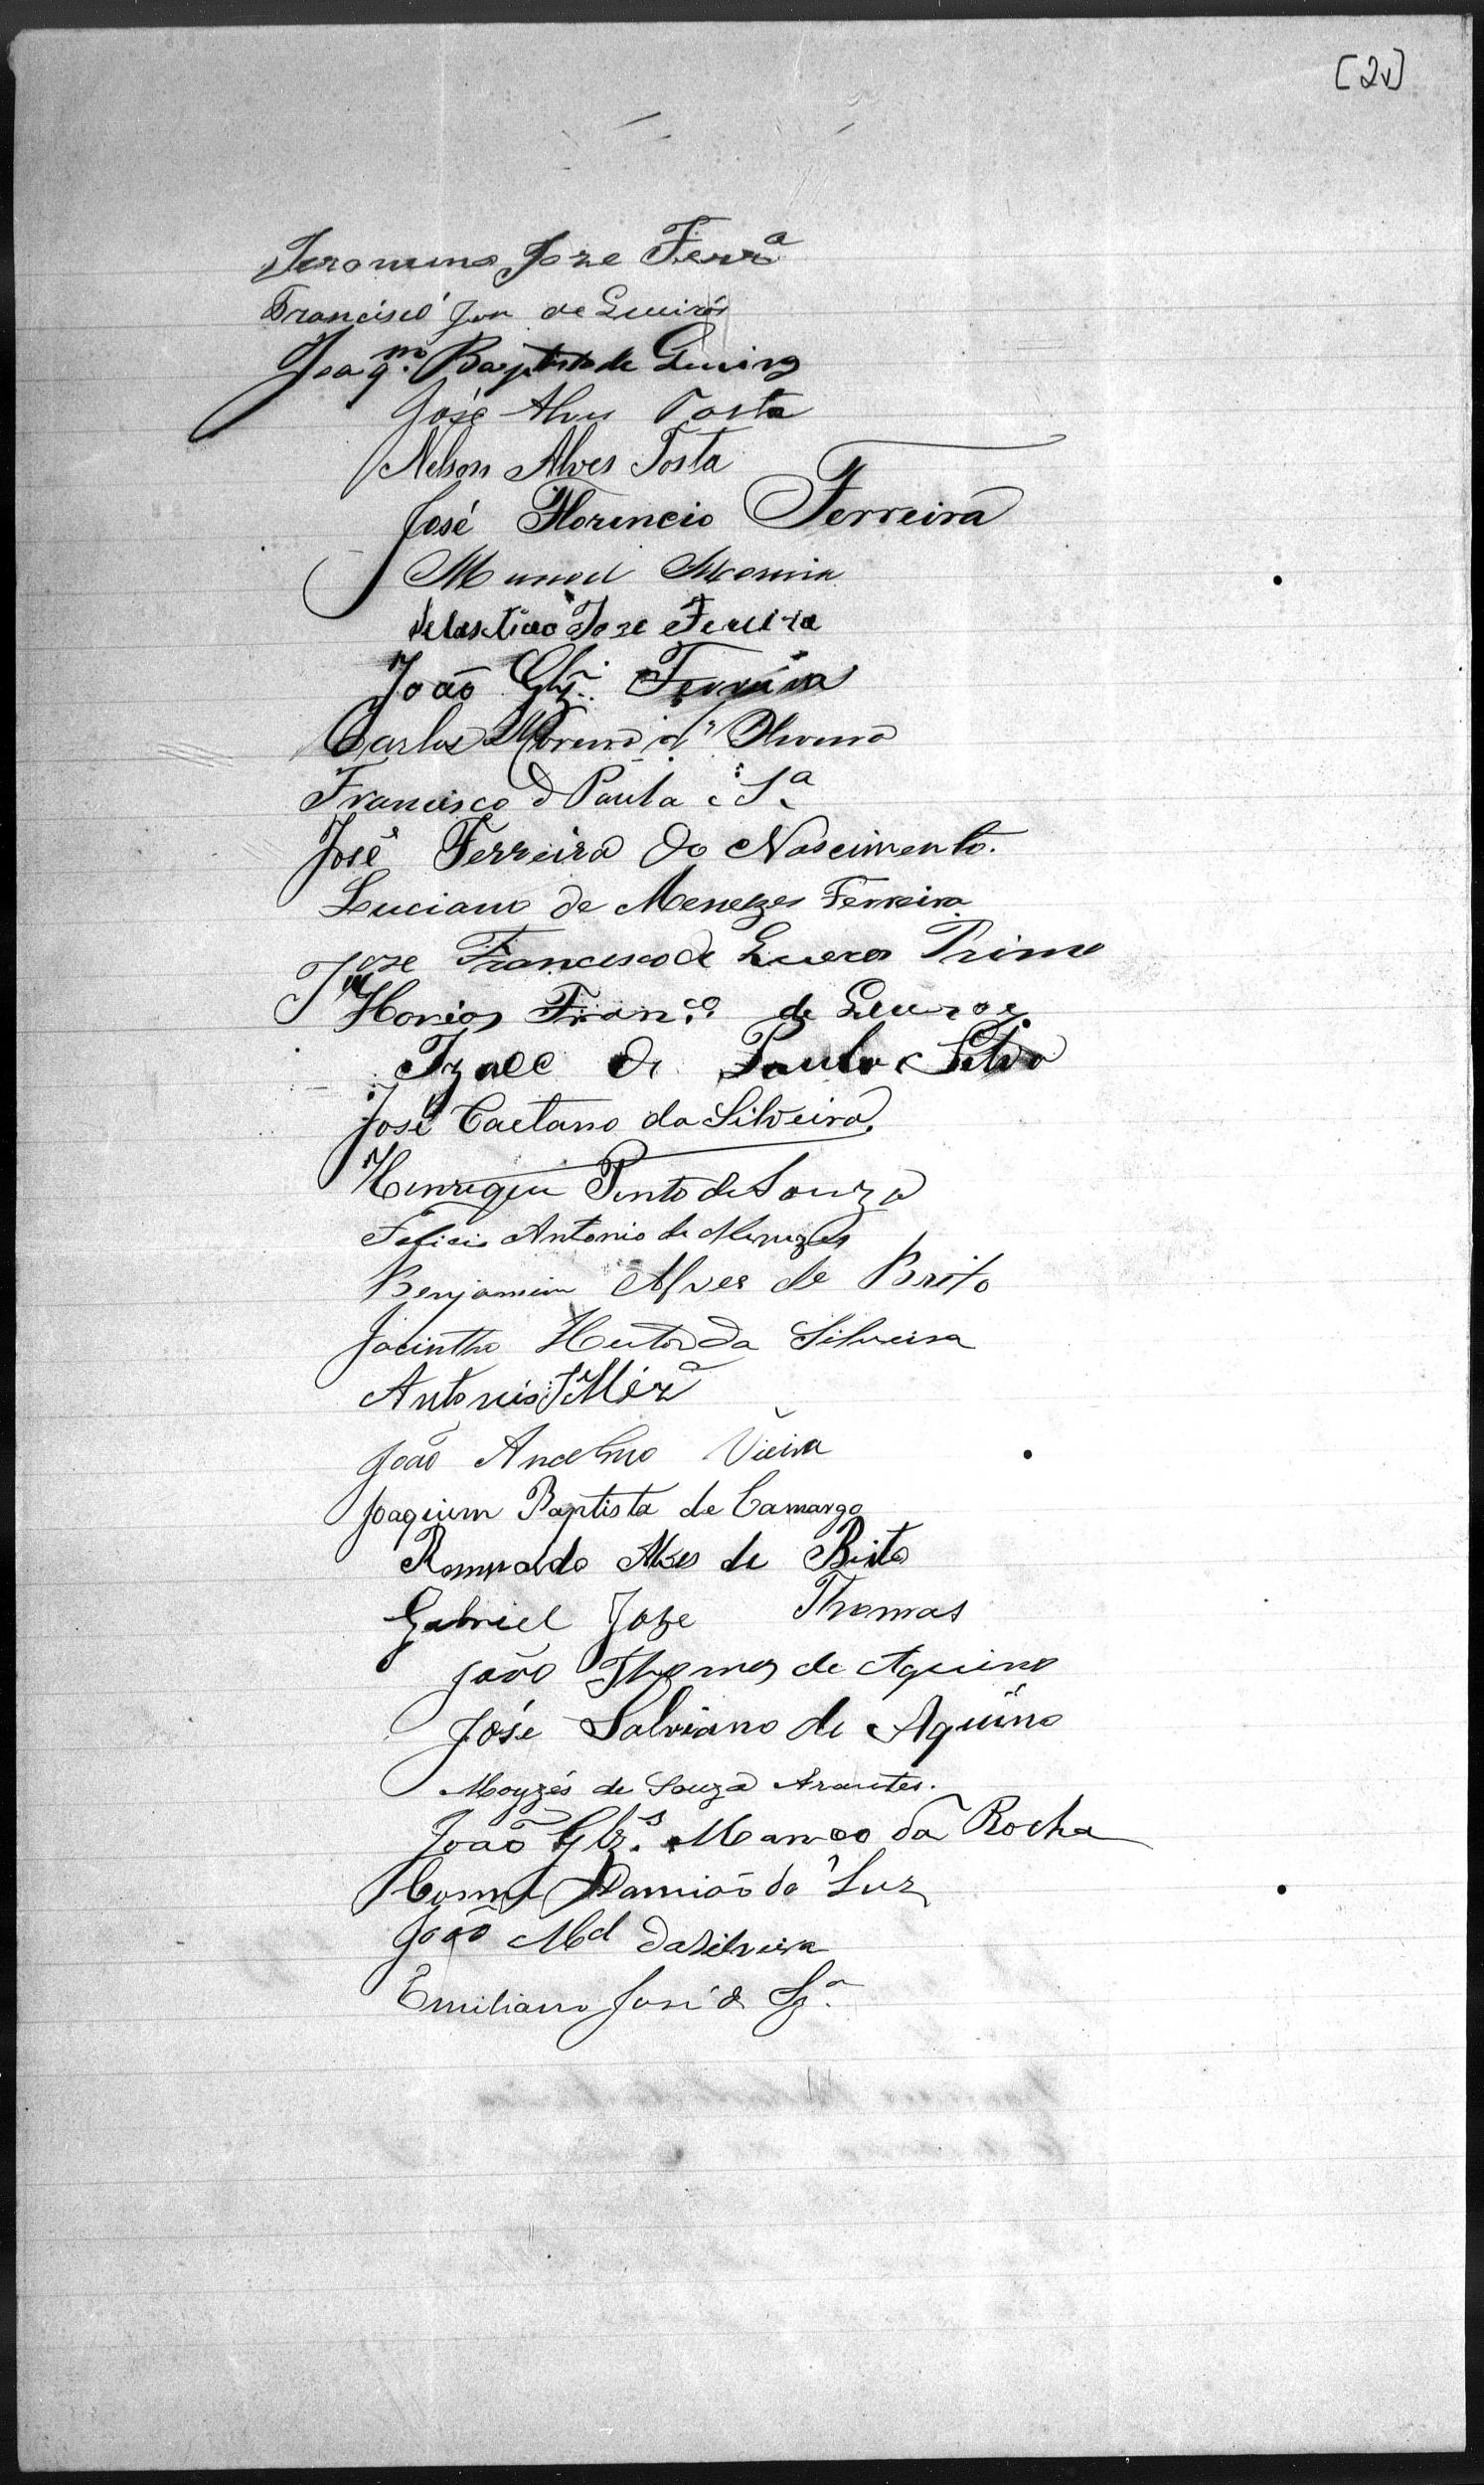 [2v]
Jeronimo Joze Ferrª
Francisco José de Queirós
Joaqm. Baptista de Queiroz
José Alves Tosta
Nelson Alves Tosta
José Florencio Ferreira
Manoel Moreira
Sebastiao Joze Ferreira
João Glz. Ferreira
Carlos Moreira d'Oliveira
Francisco d Paula e Sª
José Ferreira do Nascimento.
Luciano de Menezes Ferreira
Joze Francisco de Queros Primo
Franco. de Queiroz
de Paula Silva
José Caetano da Silveira
Henrique Pinto de Souza
Felicio Antonio de Menezes
Benjamim Alves de Brito
Jacintho Heitor da Silveira
Antonio
João Ancelmo Vieira
Joaquim Baptista de Camargo
Romualdo Alves de Brito
Gabriel Joze Thomas
João Thomas de Aquino
José Salviano de Aquino
Moyzés de Souza Arantes.
João Glz. da Rocha
Cosme Damião da Luz
João Mel da Silveira
Emiliano José de Sza.